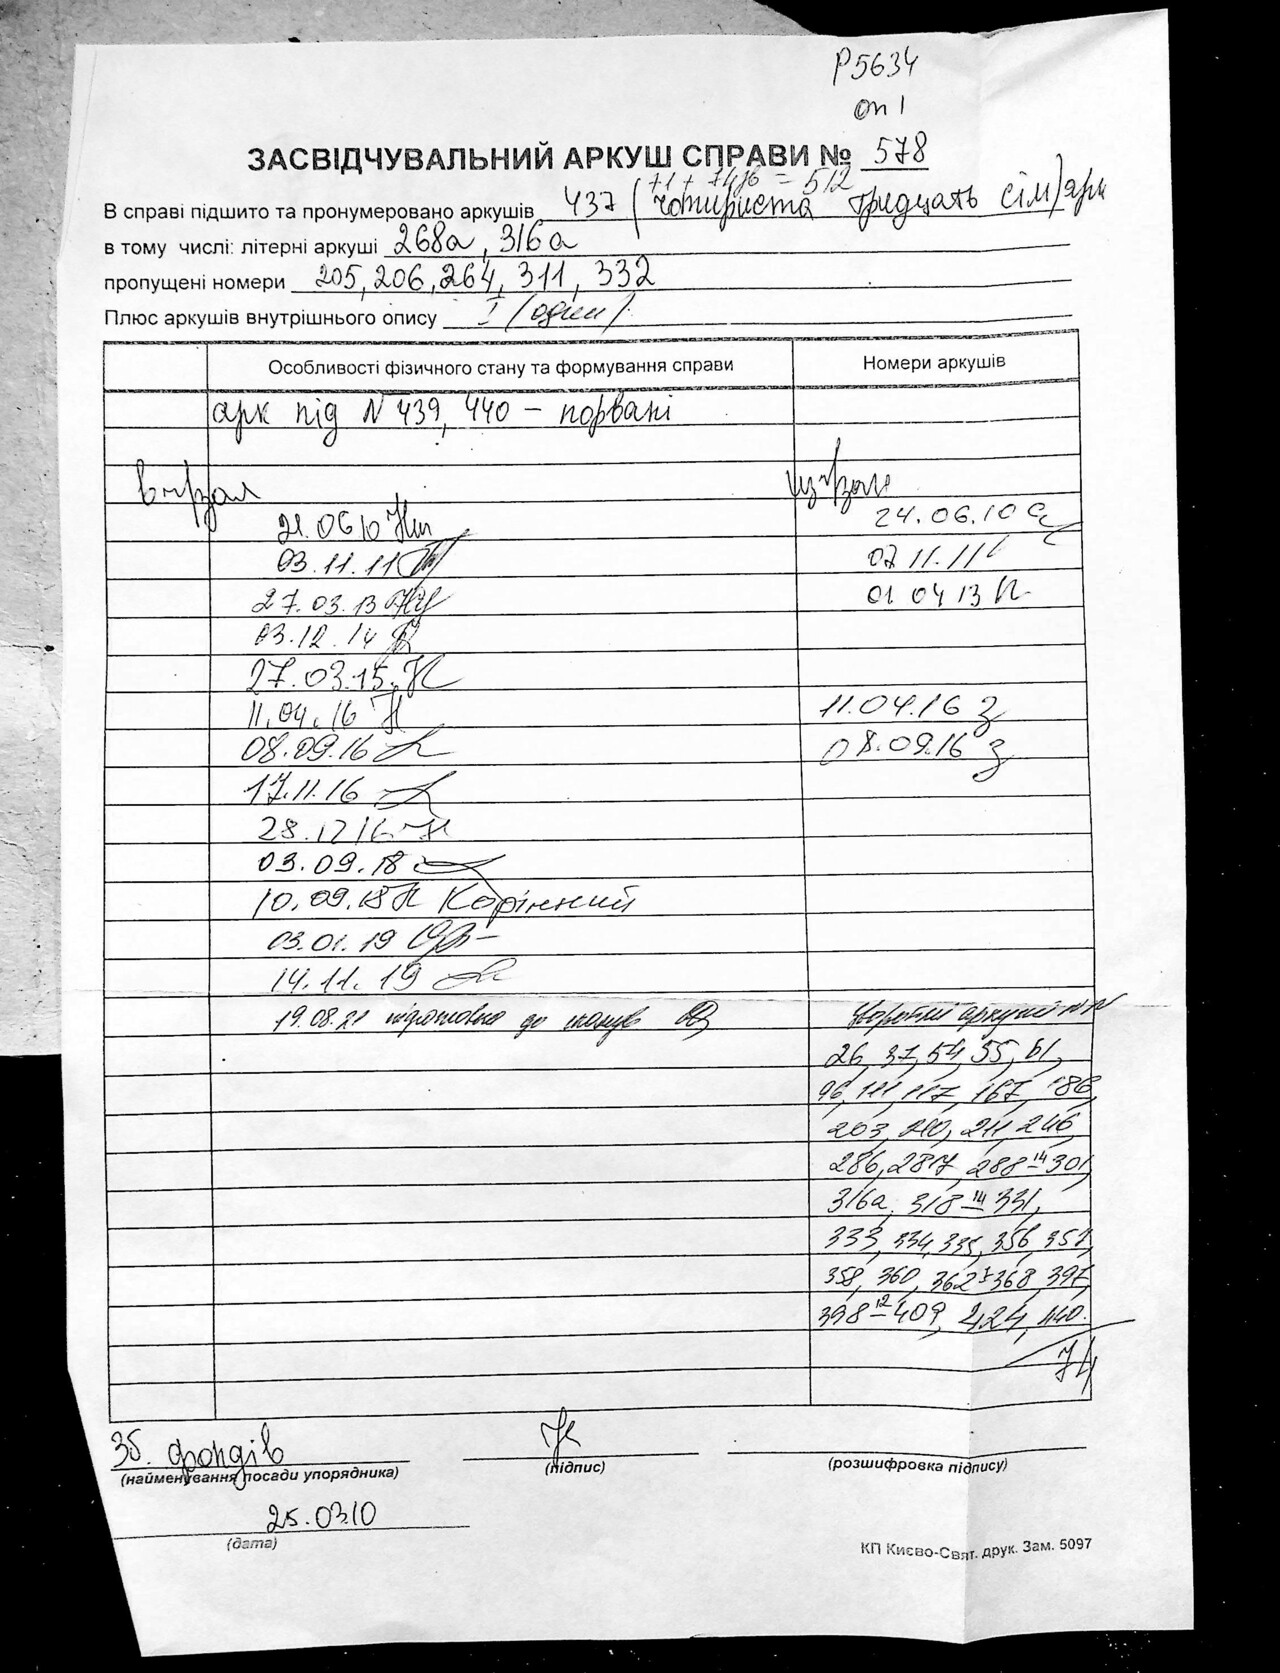 Р5634
оп 1
ЗАСВІДЧУВАЛЬНИЙ АРКУШ СПРАВИ № 578
+1 + 74 = 512
В справі підшито та пронумеровано аркушів 437 (чотириста тридцять сім) арк
в тому числі: літерні аркуші 268а, 316а
пропущені номери 205, 206, 264, 311, 332
Плюс аркушів внутрішнього опису 1 (один)
Особливості фізичного стану та формування справи Номери аркушів
арк під № 439, 440 – порвані
21.06.10 24.06.10
03.11.11 07.11.11
27.03.13 01.04.13
03.12.14
27.03.15
11.04.16 11.04.16
08.09.16 08.09.16
17.11.16
28.12.16
03.09.18
10.09.18 Корінний
03.01.19
14.11.19
19.08.21 підготовка до
26, 37, 54, 55, 61,
96, 111, 117, 167, 186
203, 210, 211, 246
286, 287, 288 – 14 301,
316а, 318 – 14 331,
333, 334, 335, 356, 357,
358, 360, 362 – 7 368, 397,
398 – 12 409, 424, 440.
74
Зб. фондів
(найменування посади упорядника) (підпис) (розшифровка підпису)
25.03.10
(дата)
КП Києво-Свят. друк. Зам. 5097